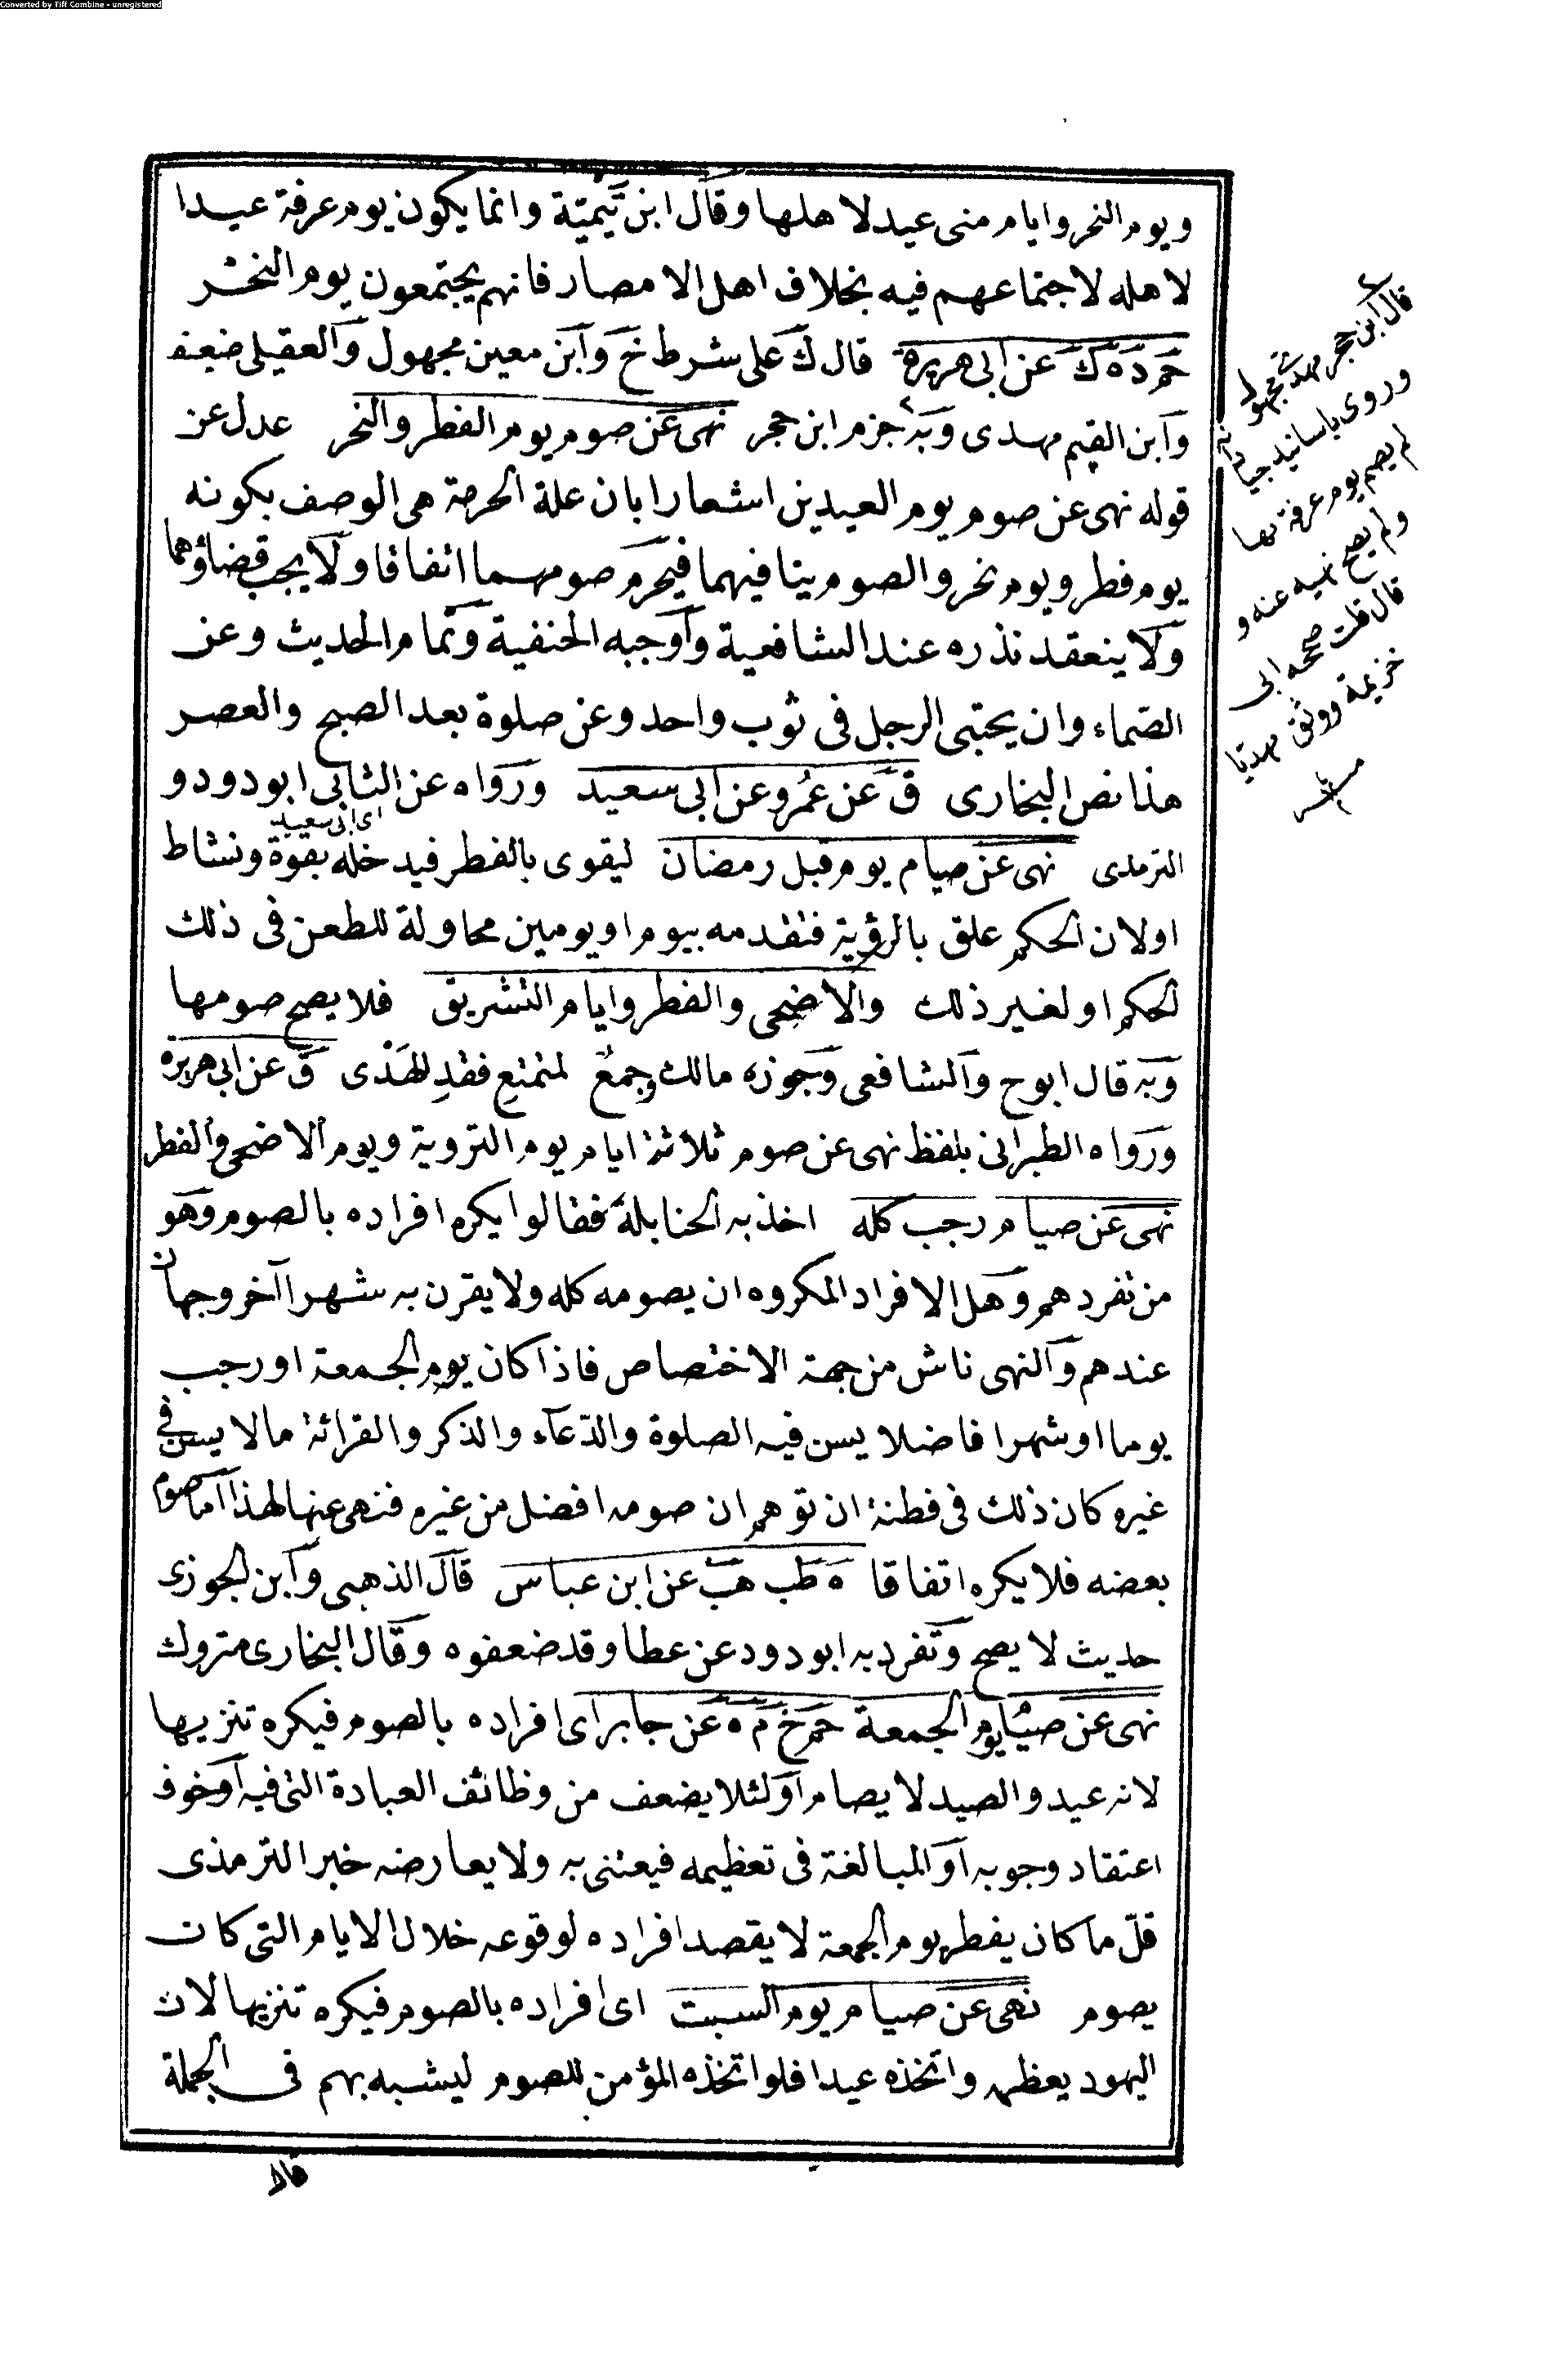 Converted by Tiff Combine - unregistered
ويوم النحر وايام منى عيد لاهلها وقال ابن تيمية وانما يكون يوم عرفة عيدا
لاهله لاجتماعهم فيه بخلاف اهل الامصار فانهم يجتمعون يوم النحر
حم د ه ك عن ابى هريرة قال ك على شرط خ وابن معين مجهول والعقيلى ضعيف
وابن القيم مهدى وبه جزم ابن حجر نهى عن صوم يوم الفطر والنحر عدل عن
قوله نهى عن صوم يوم العيدين اشعارا بان علة الحرمة هى الوصف بكونه
يوم فطر ويوم نحر والصوم ينافيهما فيحرم صومهما اتفاقا ولا يجب قضاؤهما
ولا ينعقد نذره عند الشافعية وأوجبه الحنفية وتمام الحديث وعن
الصّماء وان يحتبى الرجل فى ثوب واحد وعن صلوة بعد الصبح والعصر
هذا نص البخارى ق عن عمر وعن ابى سعيد ورواه عن الثانى ابو دود و
اى ابى سعيد
الترمذى نهى عن صيام يوم قبل رمضان ليقوى بالفطر فيدخله بقوة ونشاط
اولان الحكم علق بالرؤية فتقدمه بيوم او يومين محاولة للطعن فى ذلك
الحكم او لغير ذلك والاضحى والفطر وايام التشريق فلا يصح صومها
وبه قال ابوح والشافعى وجوزه مالك وجمعٌ لمتمتعٍ فقدِ الهَدْى ق عن ابى هريرة
ورواه الطبرانى بلفظ نهى عن صوم ثلاثة ايام يوم التروية ويوم الاضحى والفطر
نهى عن صيام رجب كله اخذ به الحنابلة فقالوا يكره افراده بالصوم وهو
من تفردهم وهل الافراد المكروه ان يصومه كله ولا يقرن به شهرا آخر وجهان
عندهم والنهى ناش من جهة الاختصاص فاذا كان يوم الجمعة او رجب
يوما او شهرا فاضلا يسن فيه الصلوة والدّعآء والذكر والقرائة مالا يسن فى
غيره كان ذلك فى فطنة ان توهم ان صومه افضل من غيره فنهى عنها لهذا اما صوم
بعضه فلا يكره اتفاقا ه طب هب عن ابن عباس قال الذهبى وابن الجوزى
حديث لا يصح وتفرد به ابو دود عن عطا وقد ضعفوه وقال البخارى متروك
نهى عن صيام يوم الجمعة حم خ م ه عن جابر اى افراده بالصوم فيكره تنزيها
لانه عيد والصيد لا يصام أو لئلا يضعف من وظائف العبادة التى فيه أو خوف
اعتقاد وجوبه او المبالغة فى تعظيمه فيعتنى به ولا يعارضه خبر الترمذى
قلّ ما كان يفطر يوم الجمعة لا يقصد افراده لوقوعه خلال الايام التى كان
يصوم نهى عن صيام يوم السبت اى افراده بالصوم فيكره تنزيها لان
اليهود يعظمه واتخذه عيدا فلو اتخذه المؤمن للصوم ليشبه بهم فى الجملة
قال ابن حجر مهدى مجهول
وروى باسانيد جياد انه
لم يصم يوم عرفة بها
ولم يصح نهيه عنه و
قال قلت صححه ابن
خزيمة ووثق مهديا